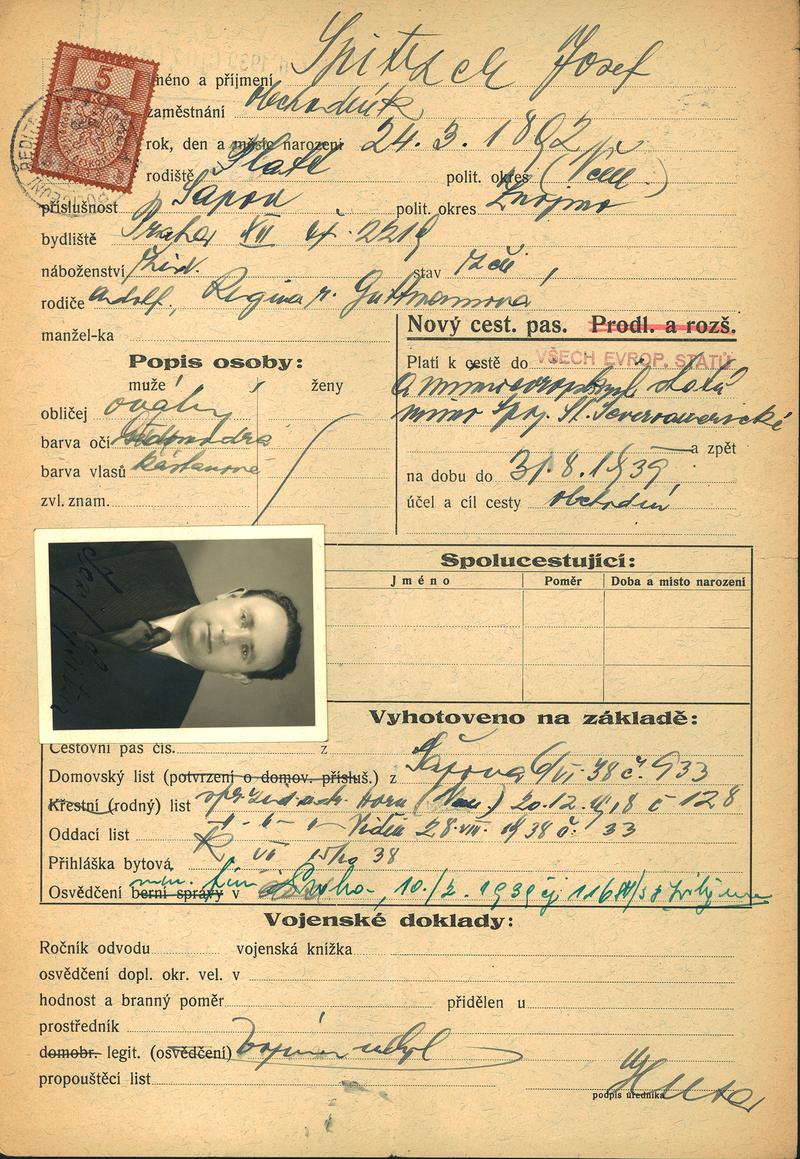 5
jméno a příjmení Spitzer Josef
zaměstnání obchodník
rok, den a místo narození 24. 3. 1892
rodiště Platt polit. okres
příslušnost Šapov polit. okres Znojmo
bydliště Praha XII čp. 2219
náboženství žid. stav
rodiče Adolf, Regina r. Guttmannová
manžel-ka
Nový cest. pas. Prodl. a rozš.
Platí k cestě do VŠECH EVROP. STÁTŮ
a mimoevropských států
mimo Spoj. St. Severoamerické
a zpět
na dobu do 31. 8. 1939
účel a cíl cesty obchodní
Popis osoby:
muže ženy
obličej oválný
barva očí šedomodrá
barva vlasů kaštanové
zvl. znam.
Spolucestující:
Jméno Poměr Doba a misto narození
Vyhotoveno na základě:
Cestovní pas čís. z
Domovský list (potvrzení o domov. přísluš.) z Šapova 6/VI. 38 č. 933
Křestní (rodný) list Horn 20. 12. č 128
Oddací list -"- -"- Vídeň 28. VIII. 1938 č. 33
Přihláška bytová VII 15/10 38
Osvědčení berní správy v Praha, 10./2. 1939 čj
Vojenské doklady:
Ročník odvodu vojenská knížka
osvědčení dopl. okr. vel. v
hodnost a branný poměr přidělen u
prostředník
domobr. legit. (osvědčení)
propouštěcí list
podpis úředníka